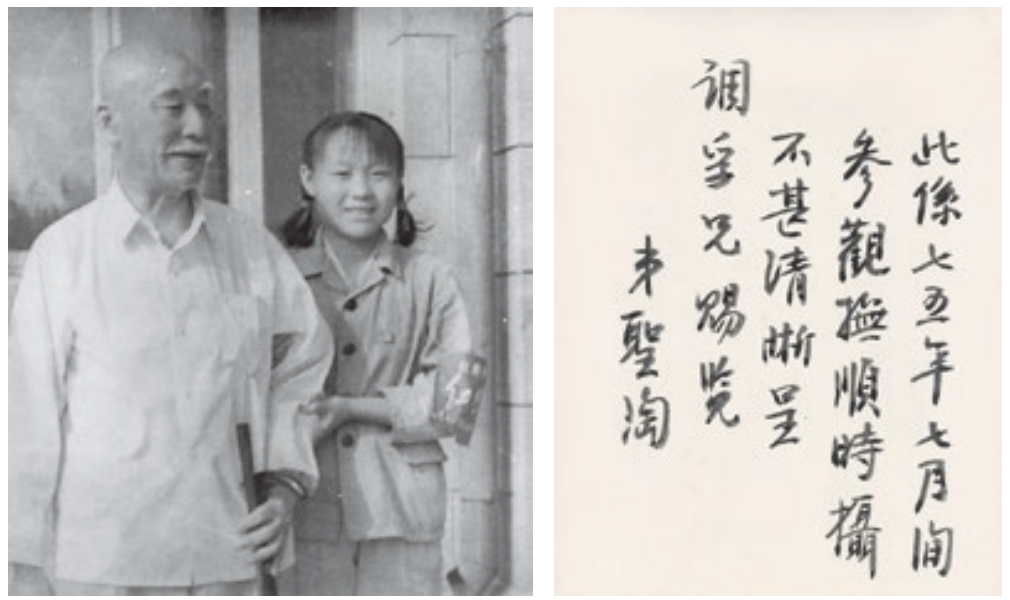 此係七五年七月间
參觀撫順時攝
不甚清晰呈
调孚兄賜览
弟聖陶